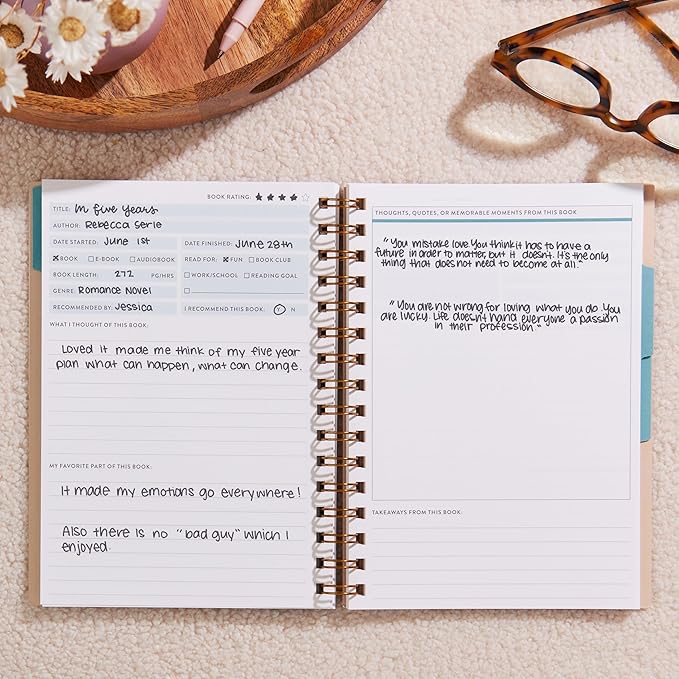 BOOK RATING: ★ ★ ★ ★ ☆
TITLE: In five years
AUTHOR: Rebecca Serle
DATE STARTED: June 1st DATE FINISHED: June 28th
☒ BOOK ☐ E-BOOK ☐ AUDIOBOOK READ FOR: ☒ FUN ☐ BOOK CLUB
BOOK LENGTH: 272 PG/HRS ☐ WORK/SCHOOL ☐ READING GOAL
GENRE: Romance Novel ☐
RECOMMENDED BY: Jessica I RECOMMEND THIS BOOK: Y N
WHAT I THOUGHT OF THIS BOOK:
Loved it made me think of my five year
plan what can happen, what can change.
MY FAVORITE PART OF THIS BOOK:
It made my emotions go everywhere!
Also there is no "bad guy" which I
enjoyed.
THOUGHTS, QUOTES, OR MEMORABLE MOMENTS FROM THIS BOOK
"You mistake love. You think it has to have a
future in order to matter, but it doesn't. It's the only
thing that does not need to become at all."
"You are not wrong for loving what you do. You
are lucky. Life doesn't hand everyone a passion
in their profession."
TAKEAWAYS FROM THIS BOOK: